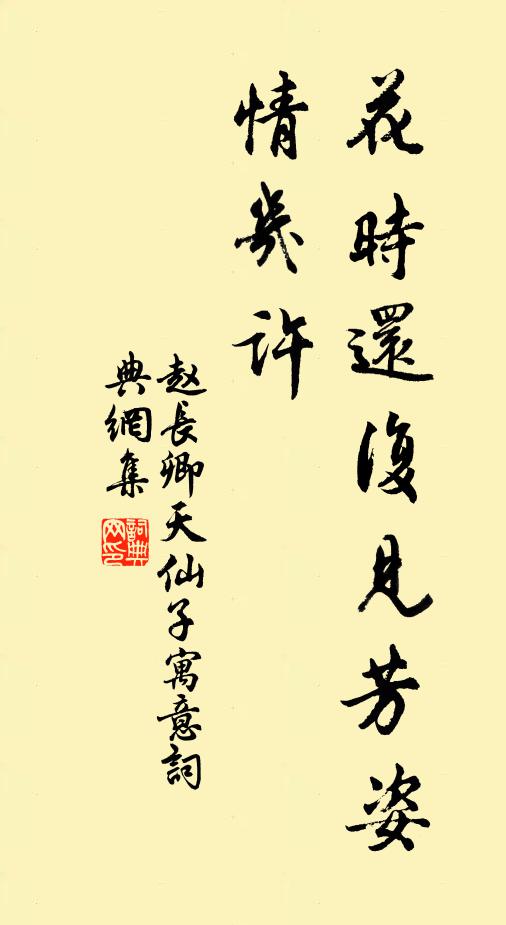 花時還復見芳姿
情幾許
赵長卿天仙子寓意詞
典網集
詞典網印